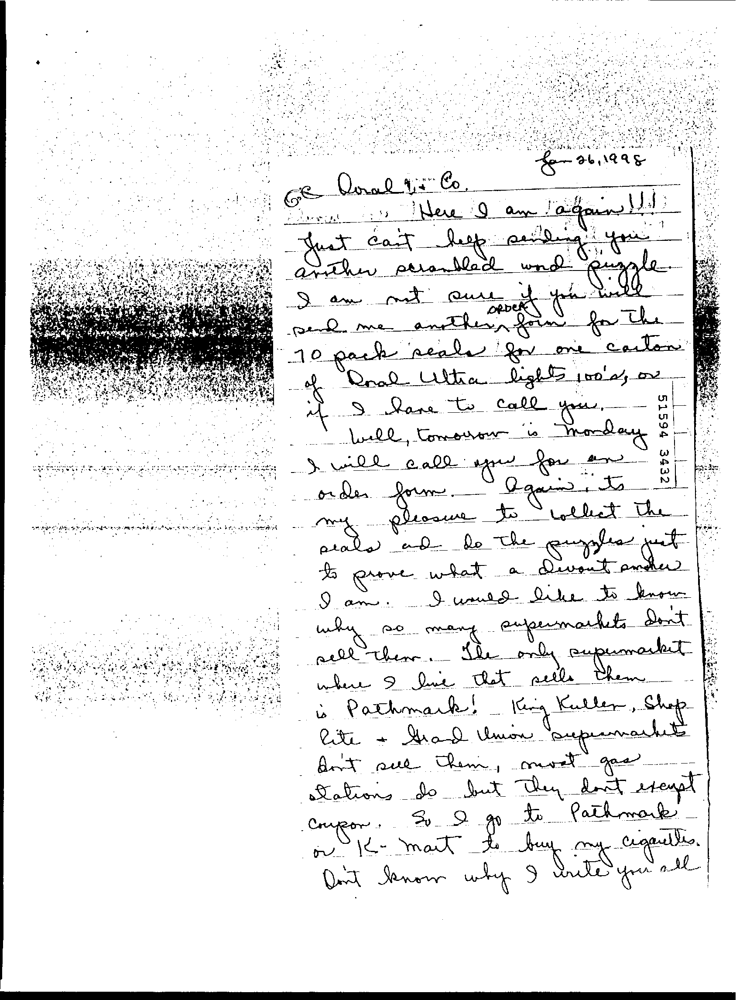 Jan 26, 1998
GC Doral & Co.
Here I am again!!!
Just can't help sending you
another scrambled word puzzle.
I am not sure if you will
send me another ORDER form for the
70 pack seals for one carton
of Doral Ultra lights 100's, or
if I have to call you.
Well, tomorrow is Monday
I will call you for an
order form. Again, its
my pleasure to collect the
seals and do the puzzles just
to prove what a devout smoker
I am. I would like to know
why so many supermarkets don't
sell them. The only supermarket
where I live that sells them
is Pathmark! King Kullen, Shop
Rite + Grand Union supermarkets
don't sell them, most gas
stations do but they don't except
coupon. So I go to Pathmark
or K-Mart to buy my cigarettes.
Don't know why I write you all
51594 3432